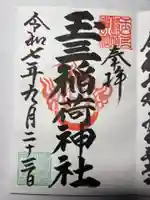 奉拝
玉三稲荷神社
令和七年九月二十三日